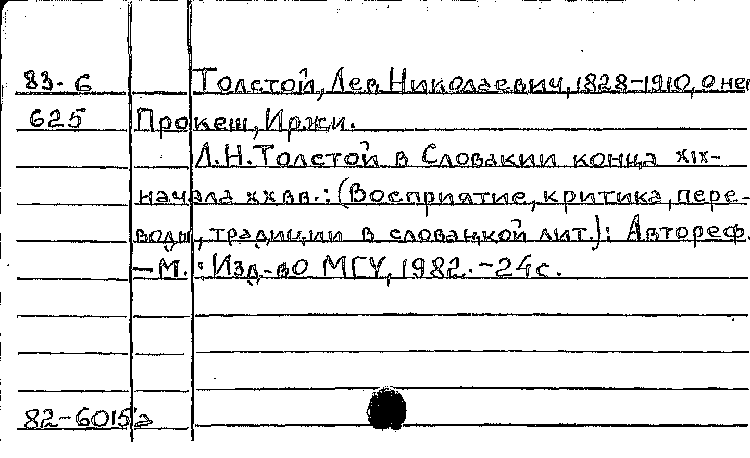 83-6 Толстой, Лев Николаевич, 1828-1910, о нем
625 Прокеш, Иржи.
Л.Н.Толстой в Словакии конца XIX-
начала XX вв.: (Восприятие, критика, пере-
воды, традиции в словацкой лит.): Автореф.
-М.: Изд-во МГУ, 1982.-24с.
82-6015а